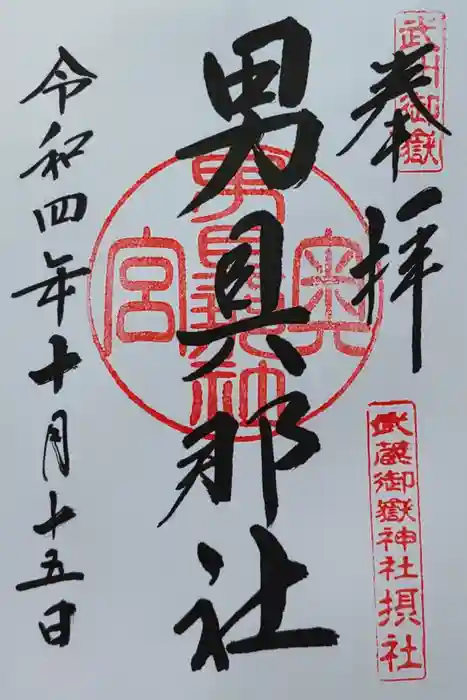 武州御嶽
奉拝
武蔵御嶽神社摂社
男具那社
奥宮
男具那社
令和四年十月十五日